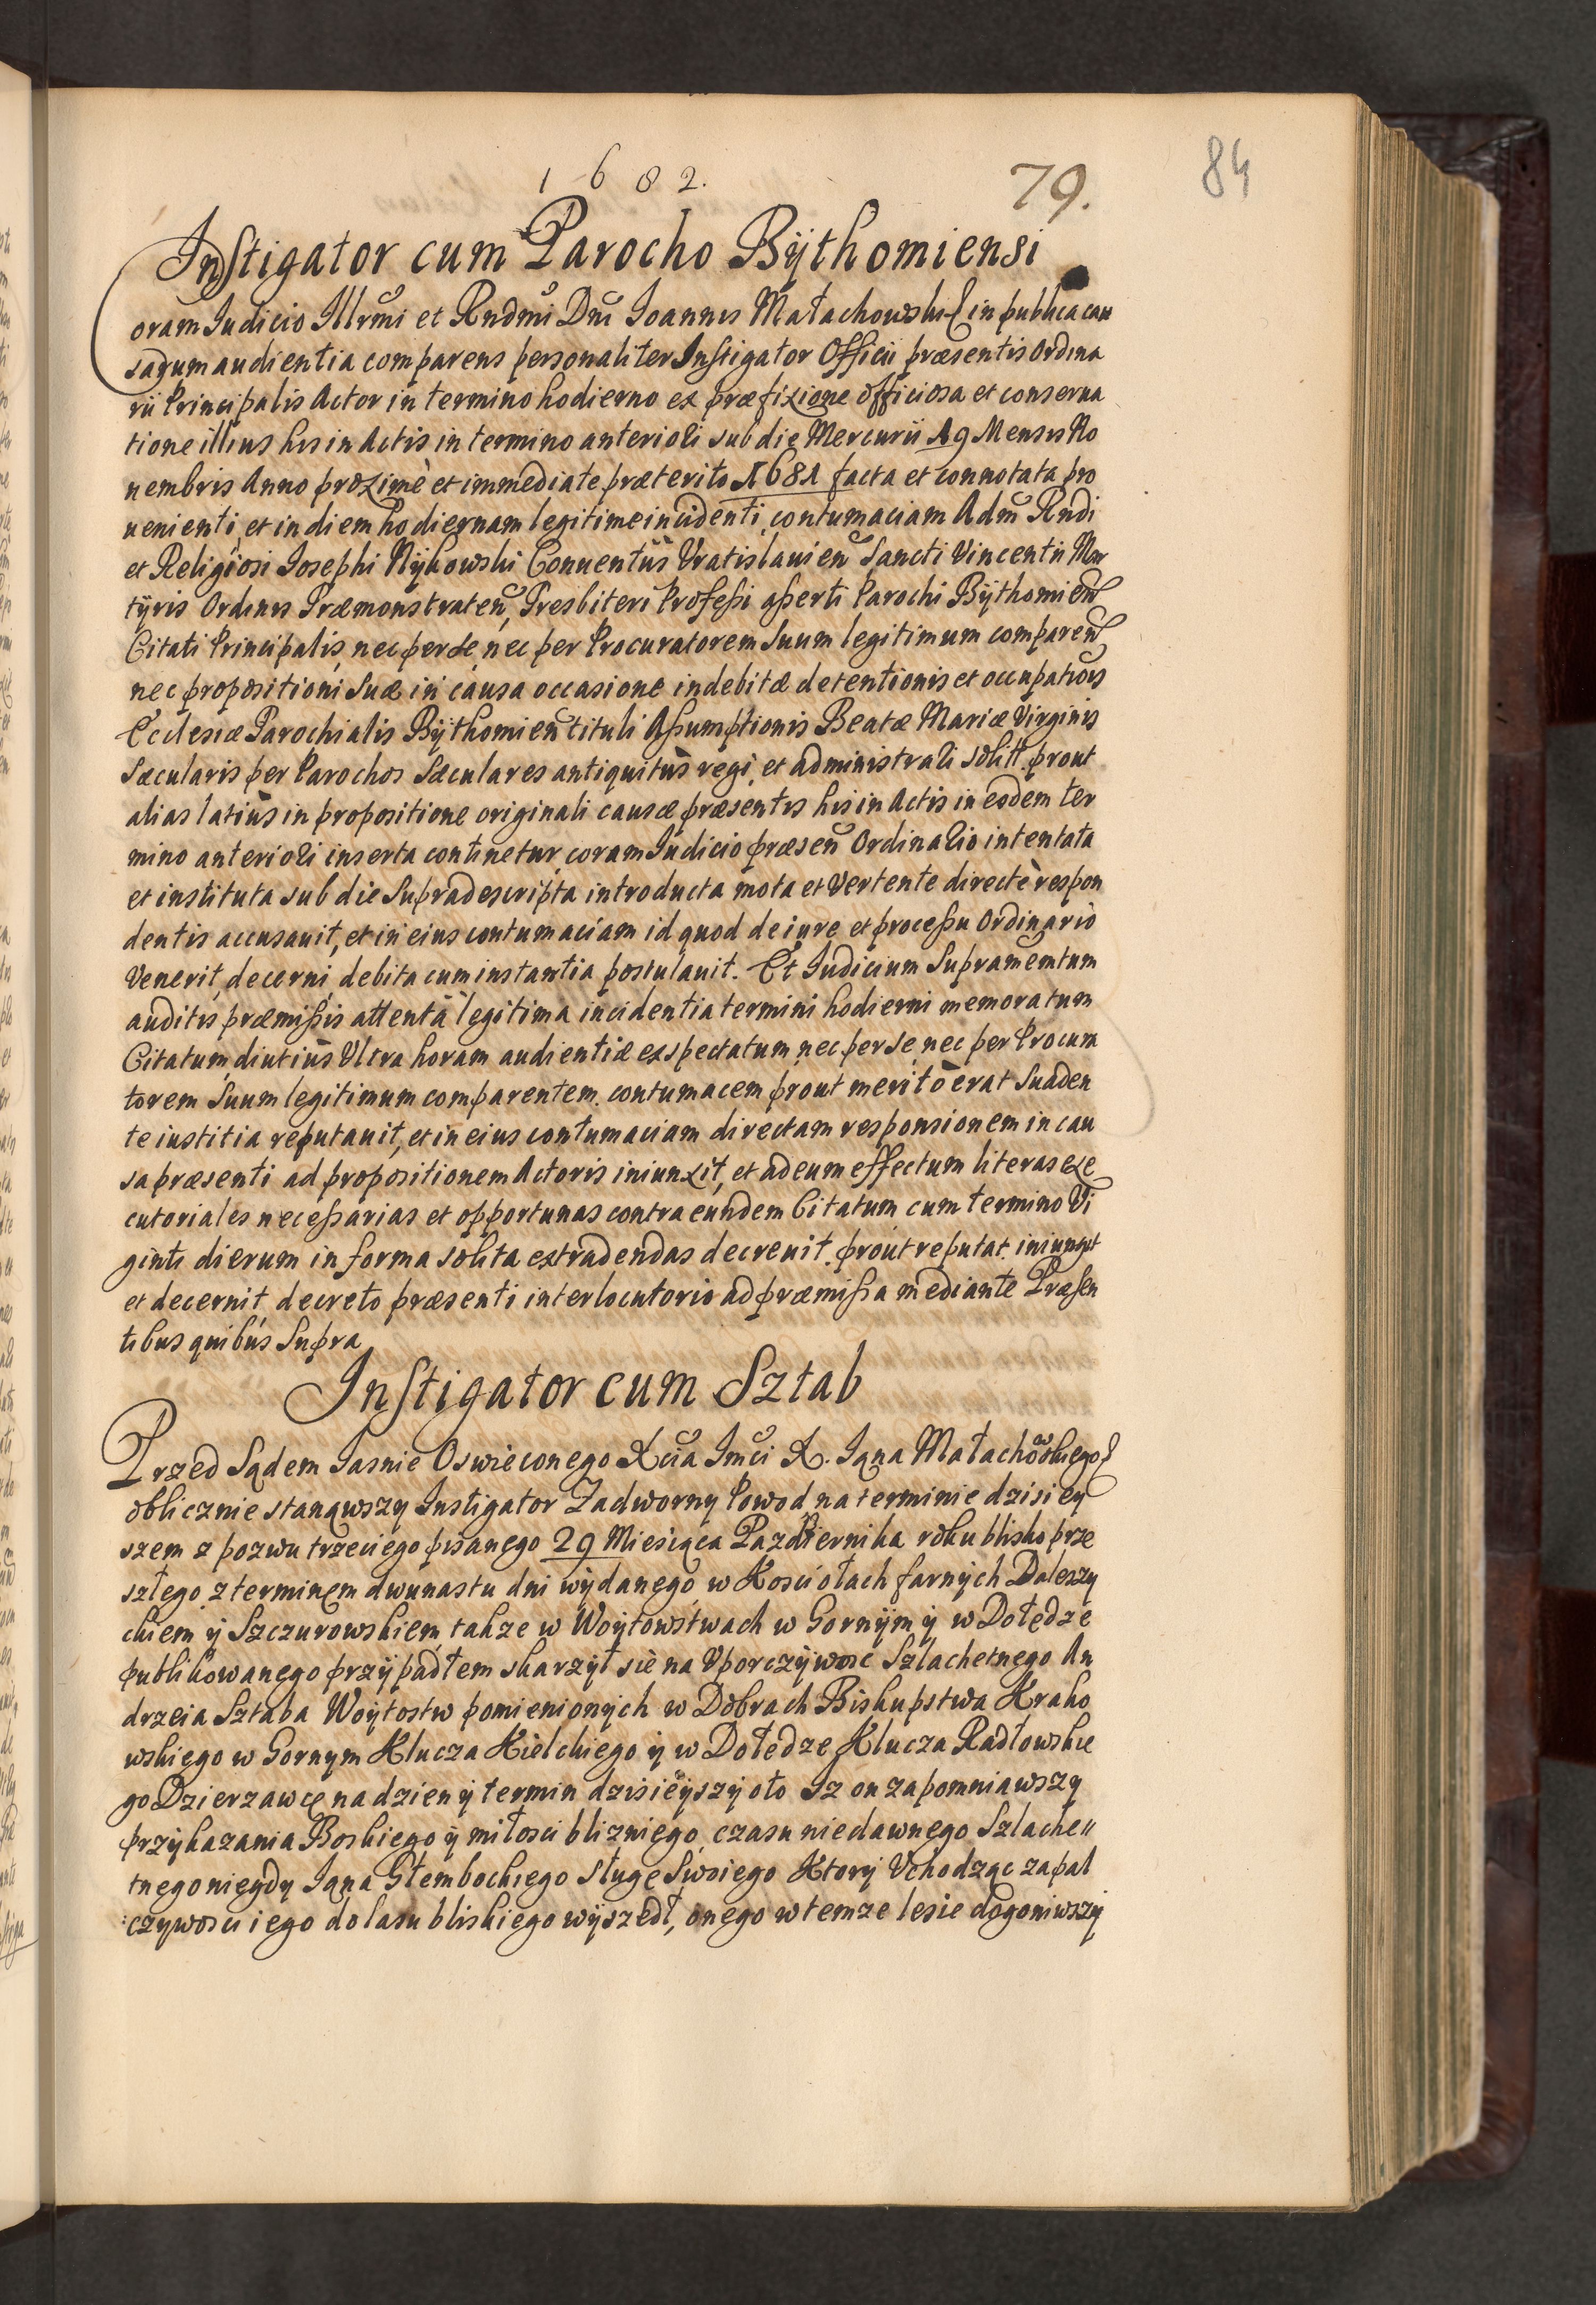 1682.
79.
84
Instigator cum Parocho Bÿthomiensi
Coram Judicio Illrmi et Rndmi Dni Joannis Małachowski in publica cau
sarum audientia comparens personaliter Instigator Officii præsentis Ordina
rii Principalis Actor in termino hodierno ex præfixione officiosa et conserua
tione illius his in Actis in termino anteriori sub die Mercurii 19 Mensis No
uembris Anno proximè et immediate præterito 1681 facta et connotata pro
uenienti, et in diem hodiernam legitime incidenti, contumaciam Adm Rndi
et Religiosi Josephi Nÿkowski Conuentûs Vratislauien Sancti Vincentii Mar
tÿris Ordinis Præmonstraten, Presbiteri Professi asserti Parochi Bÿthomien
Citati Principalis, nec per se, nec per Procuratorem suum legitimum comparen
nec propositioni suæ in causa occasione indebitæ detentionis et occupationis
Ecclesiæ Parochialis Bÿthomien tituli Assumptionis Beatæ Mariæ Virginis
Sæcularis per Parochos Sæculares antiquitùs regi, et administrari solitt. prout
alias latiùs in propositione originali causæ præsentis his in Actis in eodem ter
mino anteriori inserta continetur, coram Judicio præsen Ordinario intentata
et instituta sub die supradescripta introducta mota et vertente directè respon
dentis accusauit, et in eius contumaciam id quod de iure et processu Ordinario
venerit, decerni debita cum instantia postulauit. Et Judicium Supramemtum
auditis præmissis attentâ legitima incidentia termini hodierni memoratum
Citatum diutiùs Vltra horam audientiæ exspectatum, nec per se, nec per Procura
torem Suum legitimum comparentem. contumacem prout meritò erat suaden
te iustitia reputauit, et in eius contumaciam directam responsionem in cau
sa præsenti ad propositionem Actoris iniunxit, et ad eum effectum literas exe
cutoriales necessarias et opportunas contra eundem Citatum cum termino Vi
ginti dierum in forma solita extradendas decreuit. prout reputat. iniungit
et decernit decreto præsenti interlocutorio ad præmissa mediante Præsen
tibus quibus supra
Instigator cum Sztab
Przed Sądem Jasnie Oswieconego Xcia Jmci X. Jana Małachowskiego
oblicznie stanąwszy Instigator Zadworny Powod na terminie dzisiey
szem z pozwu trzeciego pisanego 29 Miesiąca Pazdziernika roku blisko prze
szłego z terminem dwunastu dni wydanego, w Kosciołach farnÿch Daleszy
ckiem ÿ Szczurowskiem, takze w Woÿtowstwach w Gornÿm ÿ w Dołędze
publikowanego przÿpadłem skarzÿł sie na Vporczÿwosc Szlachetnego An
drzeia Sztaba Woÿtostw pomienionÿch w Dobrach Biskupstwa Krako
wskiego w Gornym Klucza Kielckiego ÿ w Dołedze Klucza Radłowskie
go Dzierzawcę na dzien ÿ termin dzisieÿszÿ oto Iz on zapomniawszy
przÿkazania Boskiego ÿ miłosci blizniego, czasu niedawnego Szlache
tnego niegdy Jana Stembockiego sługę swoiego Ktorÿ Vchodząc zapal
czywosci iego do lasu bliskiego wÿszedł, onego w temze lesie dogoniwszÿ